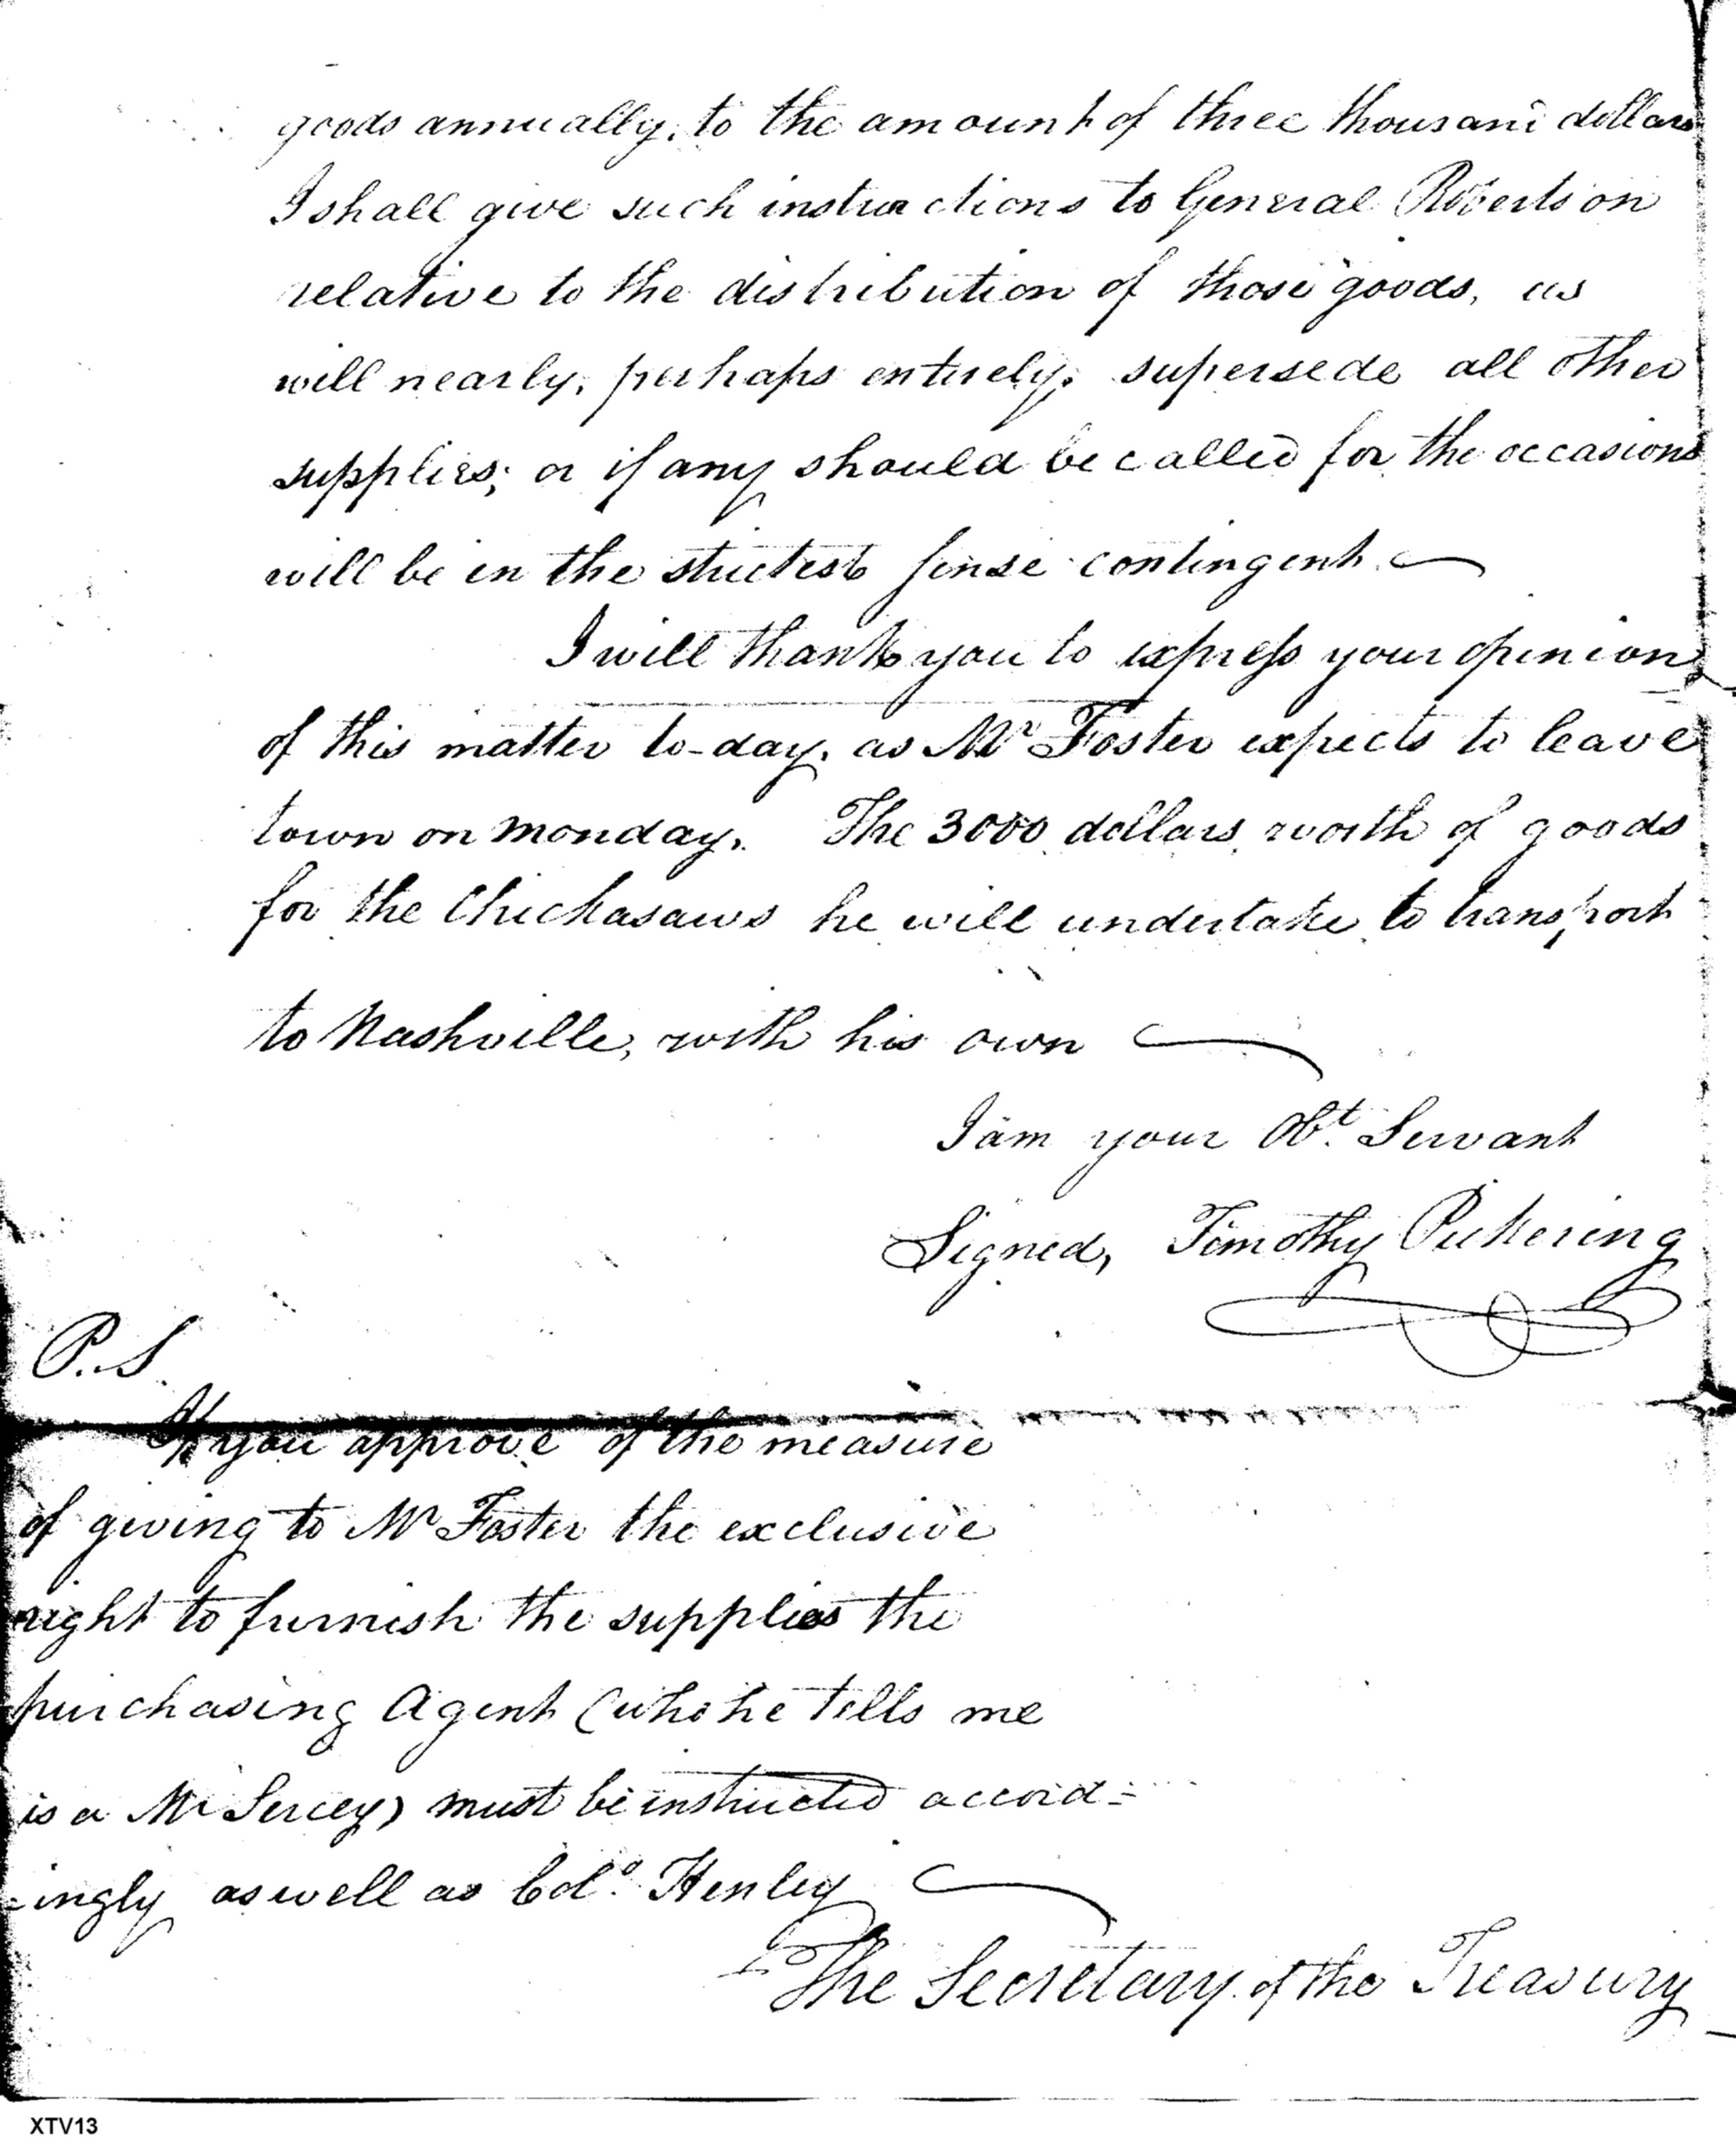 goods annually, to the amount of three thousand dollars
I shall give such instructions to General Robertson
relative to the distribution of those goods, as
will nearly, perhaps entirely, supersede all other
supplies; or if any should be called for the occasions
will be in the strictest sense contingent.
I will thank you to express your opinion
of this matter to-day, as Mr Foster expects to leave
town on monday. The 3000 dollars worth of goods
for the Chickasaws he will undertake to transport
to Nashville, with his own
I am your Obt. Servant
Signed, Timothy Pickering
P.S.
If you approve of the measure
of giving to Mr Foster the exclusive
right to furnish the supplies the
purchasing Agent (who he tells me
is a Mr Sercey) must be instructed accord=
=ingly as well as Colo. Henley
The Secretary of the Treasury
XTV13